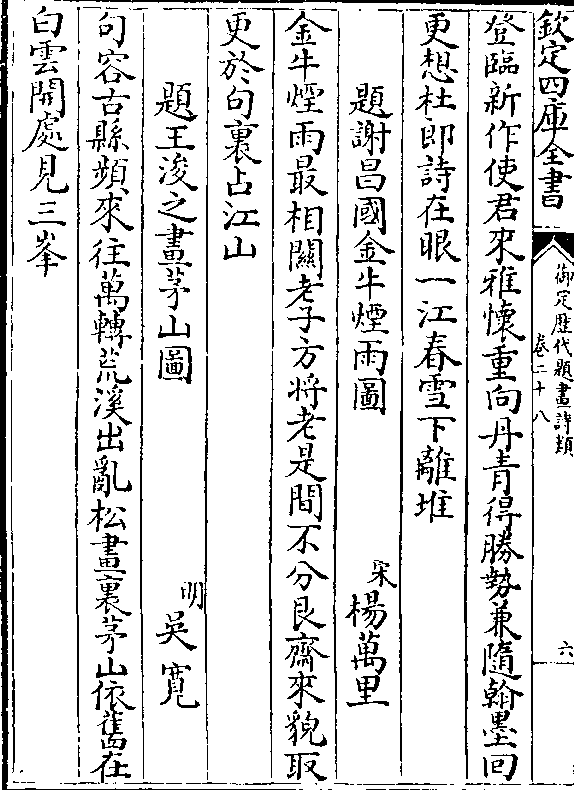 欽定四庫全書
御定歷代題畫詩類
卷二十八
六
登臨新作使君來雅懷重向丹青得勝勢兼隨翰墨回
更想杜郎詩在眼一江春雪下離堆
題謝昌國金牛煙雨圖
宋
楊萬里
金牛煙雨最相關老子方將老是間不分艮齋來貌取
更於句裏占江山
題王浚之畫茅山圖
明
吳寬
句容古縣頻來往萬轉荒溪出亂松畫裏茅山依舊在
白雲開處見三峯